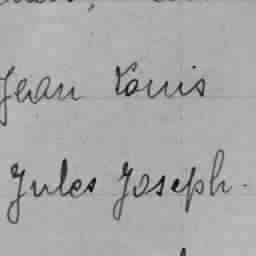 Jean Louis
Jules Joseph.